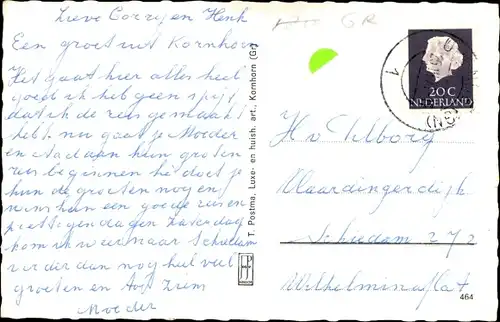 Lieve Corry en Henk
Een groet uit Kornhorn
Het gaat hier alles heel
goed ik heb geen spijt
dat ik de reis gemaakt
hebt nu gaat je Moeder
en dad aan hun groten
reis beginnen he doet je
hun de groeten nog en
wens hun een goede reis en
prettige dagen Zaterdag
kom ik weer naar Schiedam
verder dan nog heel veel
groeten en tot ziens
Moeder
GR
T. Postma, Luxe- en huish. art., Kornhorn (Gr.)
20 C
NEDERLAND
H v Tilborg
Vlaardingerdijk
Schiedam 272
Wilhelminaflat
464